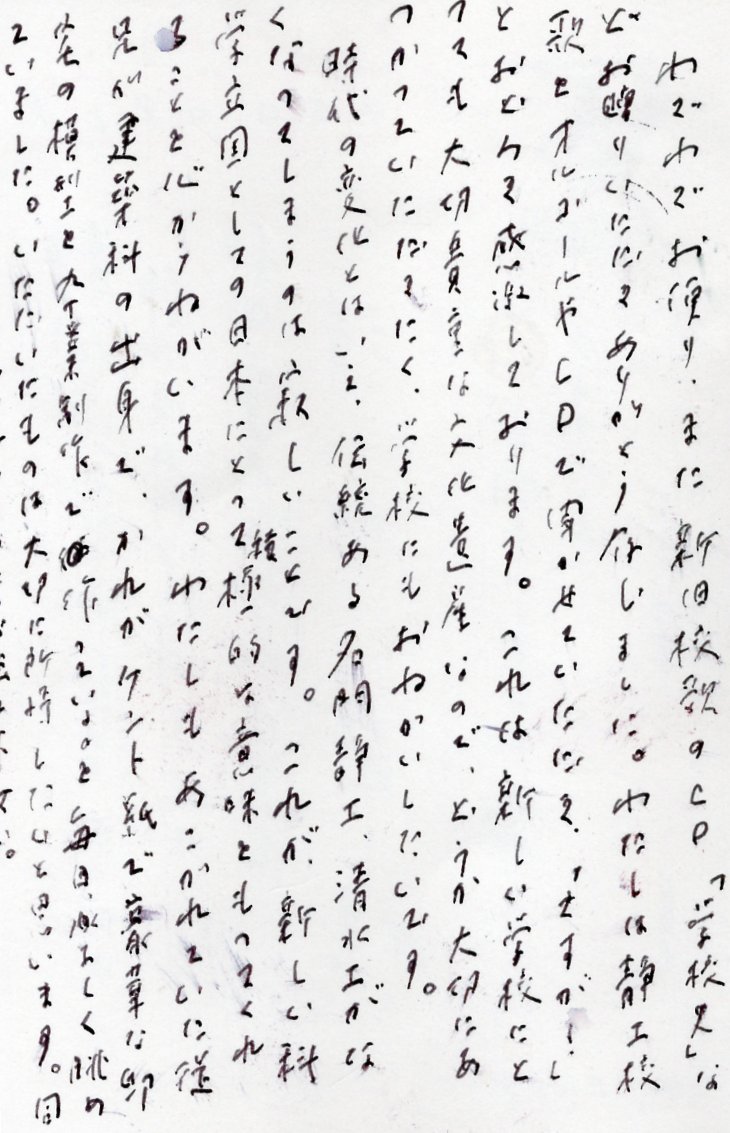 わざわざお便り、また新旧校歌のCD、「学校史」な
どお贈りいただきありがとう存じました。わたしは静工校
歌をオルゴールやCDで聞かせていただき、「さすが!」
とおどろき感激しております。これは新しい学校にと
っても大切貴重な文化遺産なので、どうか大切にあ
つかっていただきたく、学校にもおねがいしたいです。
時代の変化とは言え、伝統ある名門静工、清水工がな
くなってしまうのは寂しいことです。これが、新しい科
学立国としての日本にとって積極的な意味をもってくれ
ることを心からねがいます。わたしもあこがれていた従
兄が建築科の出身で、かれがケント紙で豪華な
の模型を卒業制作で作っているのを毎日、楽しく眺め
ていました。いただいたものは大切に所持したいと思います。同